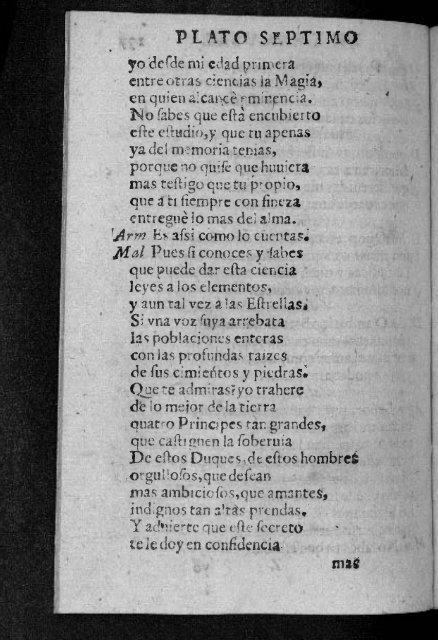 PLATO SEPTIMO
yo desde mi edad primera
entre otras ciencias la Magia,
en quien alcancè eminencia.
No sabes que està encubierto
este estudio, y que tu apenas
ya del memoria tenias,
porque no quise que huuiera
mas testigo que tu propio,
que a ti siempre con fineza
entreguè lo mas del alma.
Arm Es assi como lo cuentas.
Mal Pues si conoces y sabes
que puede dar esta ciencia
leyes a los elementos,
y aun tal vez a las Estrellas.
Si vna voz suya arrebata
las poblaciones enteras
con las profundas raizes
de sus cimientos y piedras.
Que te admiras? yo trahere
de lo mejor de la tierra
quatro Principes tan grandes,
que castiguen la soberuia
De estos Duques, de estos hombres
orgullosos, que desean
mas ambiciosos, que amantes,
indignos tan altas prendas.
Y aduierte que este secreto
te le doy en confidencia
mas